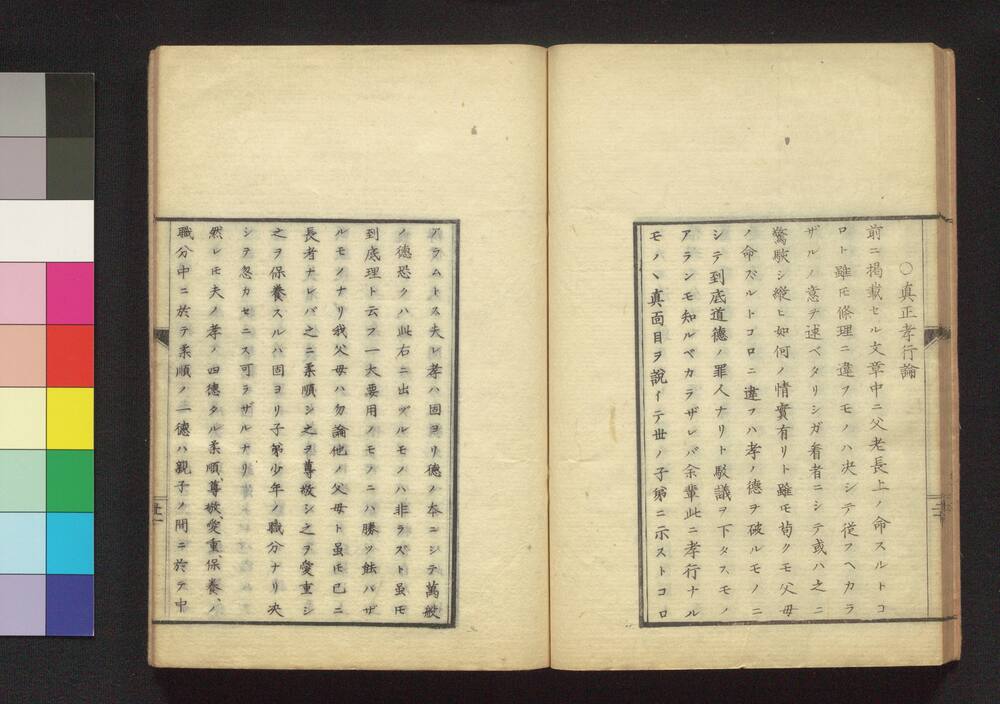 ○真正孝行論
前ニ掲載セル文章中ニ父老長上ノ命スルトコ
ロト雖モ條理ニ違フモノハ决シテ從フヘカラ
ザルノ意ヲ述ベタリシガ看者ニシテ或ハ之ニ
驚駭シ縦ヒ如何ノ情實有リト雖モ苟クモ父母
ノ命ズルトコロニ違フハ孝ノ德ヲ破ルモノニ
シテ到底道德ノ罪人ナリト駁議ヲ下タスモノ
アランモ知ルベカラザレバ余輩此ニ孝行ナル
モノヽ真面目ヲ説イテ世ノ子弟ニ示ストコロ
アラムトス夫レ孝ハ固ヨリ德ノ本ニシテ萬般
ノ德恐クハ此右ニ出ヅルモノハ非ラズト虽モ
到底理ト云フ一大要用ノモノニハ勝ツ能バザ
ルモノナリ我父母ハ勿論他ノ父母ト虽モ已ニ
長者ナレバ之ニ柔順シ之ヲ尊敬シ之ヲ愛重シ
之ヲ保養スルハ固ヨリ子弟少年ノ職分ナリ决
シテ忽カセニス可ラザルナリ
然レモ夫ノ孝ノ四德タル柔順、尊敬、愛重、保養、ノ
職分中ニ於テ柔順ノ一德ハ親子ノ間ニ於テ中